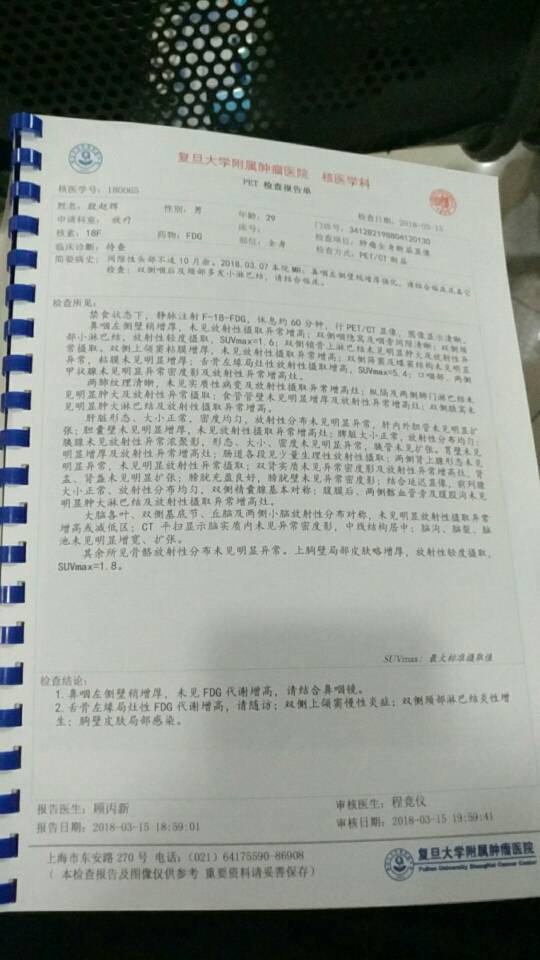 复旦大学附属肿瘤医院 核医学科
PET 检查报告单
核医学号：180065
姓名：段赵辉 性别：男 年龄：29 检查日期：2018-03-15
申请科室：放疗 床号： 门诊号：341282198804120130
核素：18F 药物：FDG 部位：全身 检查项目：肿瘤全身断层显像
临床诊断：待查 检查方式：PET/CT断层
简要病史：间隙性头部不适10月余。2018.03.07本院MR：鼻咽左侧壁稍增厚强化，请结合临床及其它
检查；双侧咽后及颈部多发小淋巴结，请结合临床。
检查所见：
禁食状态下，静脉注射F-18-FDG，休息约60分钟，行PET/CT显像，图像显示清晰。
鼻咽左侧壁稍增厚，未见放射性摄取异常增高；双侧咽隐窝及咽旁间隙清晰；双侧颈
部小淋巴结，放射性轻度摄取，SUVmax=1.6；双侧锁骨上淋巴结未见明显肿大及放射性异
常摄取。双侧上颌窦粘膜增厚，未见放射性摄取异常增高；双侧筛窦及蝶窦结构未见明显
异常，粘膜未见明显增厚；舌骨左缘局灶性放射性摄取增高，SUVmax=5.4；口咽部、两侧
甲状腺未见明显异常密度影及放射性摄取异常增高灶。
两肺纹理清晰，未见实质性病变及放射性摄取异常增高灶；纵隔及两侧肺门淋巴结未
见明显肿大及放射性异常摄取；食管管壁未见明显增厚及放射性异常增高；双侧腋窝未
见明显肿大淋巴结及放射性摄取异常增高。
肝脏形态、大小正常，密度均匀，放射性分布未见明显异常，肝内外胆管未见明显扩
张；胆囊壁未见明显增厚，未见放射性摄取异常增高灶；脾脏大小正常，放射性分布均匀；
胰腺未见放射性异常浓聚影，形态、大小、密度未见明显异常，胰管未见扩张。胃壁未见
明显增厚及放射性异常增高灶；肠道各段见少量生理性放射性摄取；两侧肾上腺形态未见
明显异常，未见明显放射性异常摄取；双肾实质未见异常密度影及放射性异常增高灶，肾
盂、肾盏未见明显扩张；膀胱充盈良好，膀胱壁未见异常密度影；结合延迟显像，前列腺
大小正常、放射性分布均匀，双侧精囊腺基本对称；腹膜后、两侧髂血管旁及腹股沟未见
明显肿大淋巴结及放射性摄取异常增高灶。
大脑各叶、双侧基底节、丘脑及两侧小脑放射性分布对称，未见明显放射性摄取异常
增高或减低区；CT 平扫显示脑实质内未见异常密度影，中线结构居中；脑沟、脑裂、脑
池未见明显增宽、扩张。
其余所见骨骼放射性分布未见明显异常。上胸壁局部皮肤略增厚，放射性轻度摄取，
SUVmax=1.8。
SUVmax：最大标准摄取值
检查结论：
1.鼻咽左侧壁稍增厚，未见FDG代谢增高，请结合鼻咽镜。
2.舌骨左缘局灶性FDG代谢增高，请随访；双侧上颌窦慢性炎症；双侧颈部淋巴结炎性增
生；胸壁皮肤局部感染。
报告医生：顾丙新 审核医生：程竞仪
报告日期：2018-03-15 18:59:01 审核日期：2018-03-15 19:59:41
上海市东安路270号 电话：(021) 64175590-86908
( 本检查报告及图像仅供参考 重要资料请妥善保存)
复旦大学附属肿瘤医院
Fudan University Shanghai Cancer Center